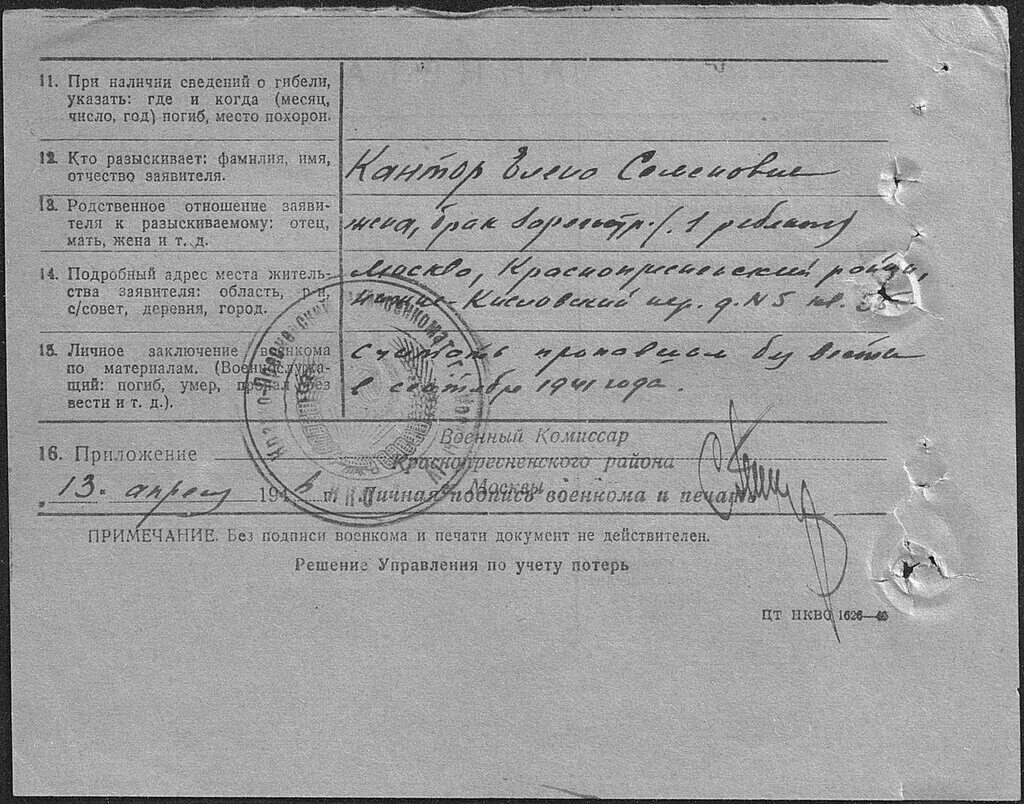 11. При наличии сведений о гибели,
указать: где и когда (месяц,
число, год) погиб, место похорон.
12. Кто разыскивает: фамилия, имя,
отчество заявителя.
Кантор Елена Семеновна
13. Родственное отношение заяви-
теля к разыскиваемому: отец,
мать, жена и т. д.
жена, брак зарегистр. (1 ребенок)
14. Подробный адрес места житель-
ства заявителя: область, р-н,
с/совет, деревня, город.
Москва, Краснопресненский район,
Нижне-Кисловский пер. д. N 5 кв.
15. Личное заключение военкома
по материалам. (Военнослужа-
щий: погиб, умер, пропал без
вести и т. д.).
считать пропавшим без вести
в сентябре 1941 года.
16. Приложение
Военный Комиссар
Краснопресненского района
г. Москвы
13. апреля 194 г. Личная подпись военкома и печать
ПРИМЕЧАНИЕ. Без подписи военкома и печати документ не действителен.
Решение Управления по учету потерь
ЦТ НКВО 1626—46